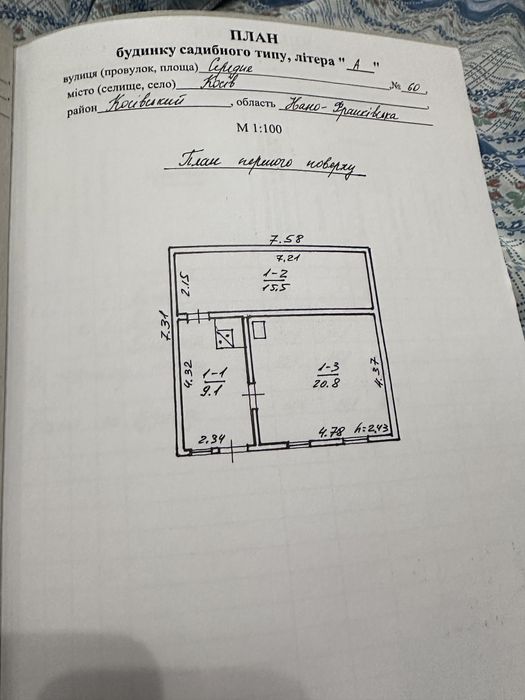 ПЛАН
будинку садибного типу, літера " А "
вулиця (провулок, площа) Середнє
місто (селище, село) Косів ,№ 60 ,
район Косівський , область Івано-Франківська ,
М 1:100
План першого поверху
7.58
7,21
1-2
15,5
2.15
7.31
4.32
1-1
9.1
1-3
20.8
4.37
2.34
4.78 h=2,43